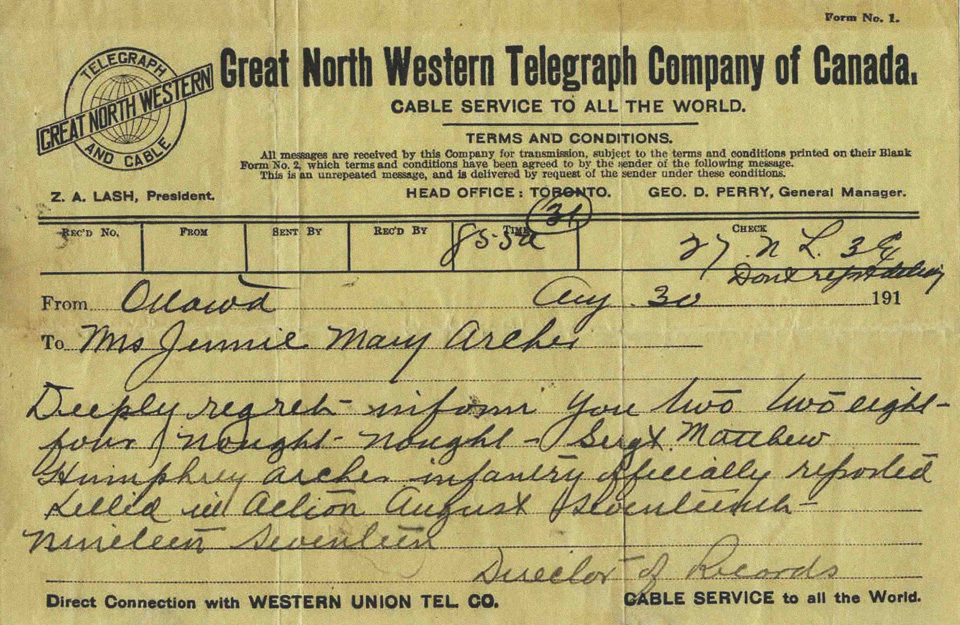 Form No. 1.
TELEGRAPH
GREAT NORTH WESTERN
AND CABLE
Great North Western Telegraph Company of Canada.
CABLE SERVICE TO ALL THE WORLD.
TERMS AND CONDITIONS.
All messages are received by this Company for transmission, subject to the terms and conditions printed on their Blank
Form No. 2, which terms and conditions have been agreed to by the sender of the following message.
This is an unrepeated message, and is delivered by request of the sender under these conditions.
Z. A. LASH, President. HEAD OFFICE: TORONTO. GEO. D. PERRY, General Manager.
31
REC'D No. FROM SENT BY REC'D BY TIME CHECK
27 N L
Dont
From Ottawa Aug 30 191
To Mrs Jennie Mary Archer
Deeply regret inform you two two eight
four nought nought Sergt Matthew
Humphrey Archer infantry officially reported
killed in Action August Seventeenth
nineteen Seventeen
Director of Records
Direct Connection with WESTERN UNION TEL. CO. CABLE SERVICE to all the World.